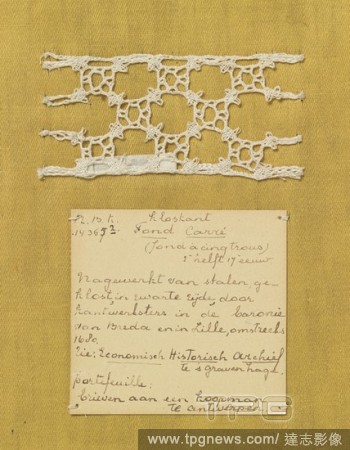 R.B.K. Kloskant
14365 2 Fond Carré
(fond à cinq trous)
2e helft 17e eeuw
Nagewerkt van stalen ge-
klost, in zwarte zijde, door
kantwerksters in de baronie
van Breda en in Lille, omstreeks
1680.
Zie: Economisch Historisch Archief
te 's gravenhage.
portefeuille.
brieven aan een koopman
te antwerpen
www.tpgnews.com / 達志影像